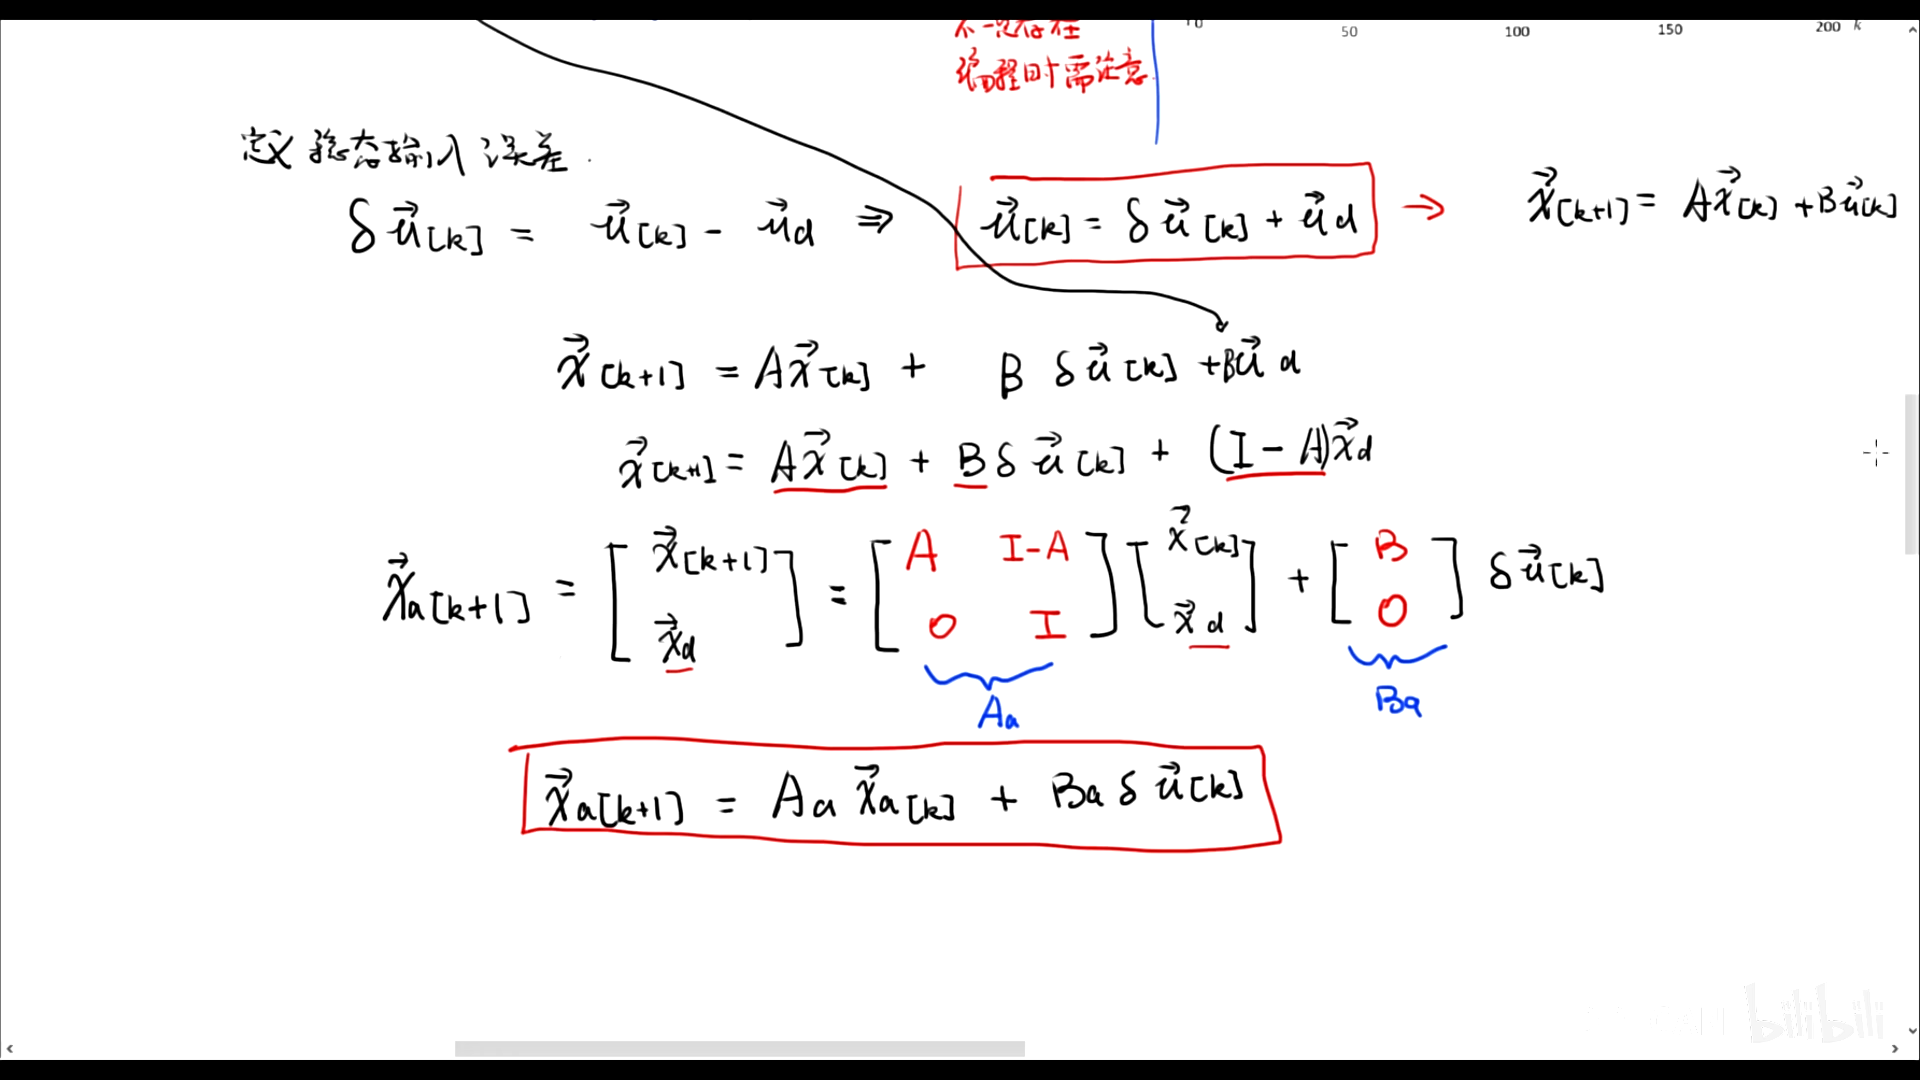 10 50 100 150 200 k
不一定存在
编程时需注意
定义稳态输入误差.
δu⃗[k] = u⃗[k] - u⃗d ⇒ u⃗[k] = δu⃗[k] + u⃗d → x⃗[k+1] = Ax⃗[k] + Bu⃗[k]
x⃗[k+1] = Ax⃗[k] + B δu⃗[k] + Bu⃗d
x⃗[k+1] = Ax⃗[k] + Bδu⃗[k] + (I-A)x⃗d
x⃗a[k+1] = [x⃗[k+1] x⃗d] = [A I-A 0 I] [x⃗[k] x⃗d] + [B 0] δu⃗[k]
Aa Ba
x⃗a[k+1] = Aa x⃗a[k] + Ba δu⃗[k]
bilibili